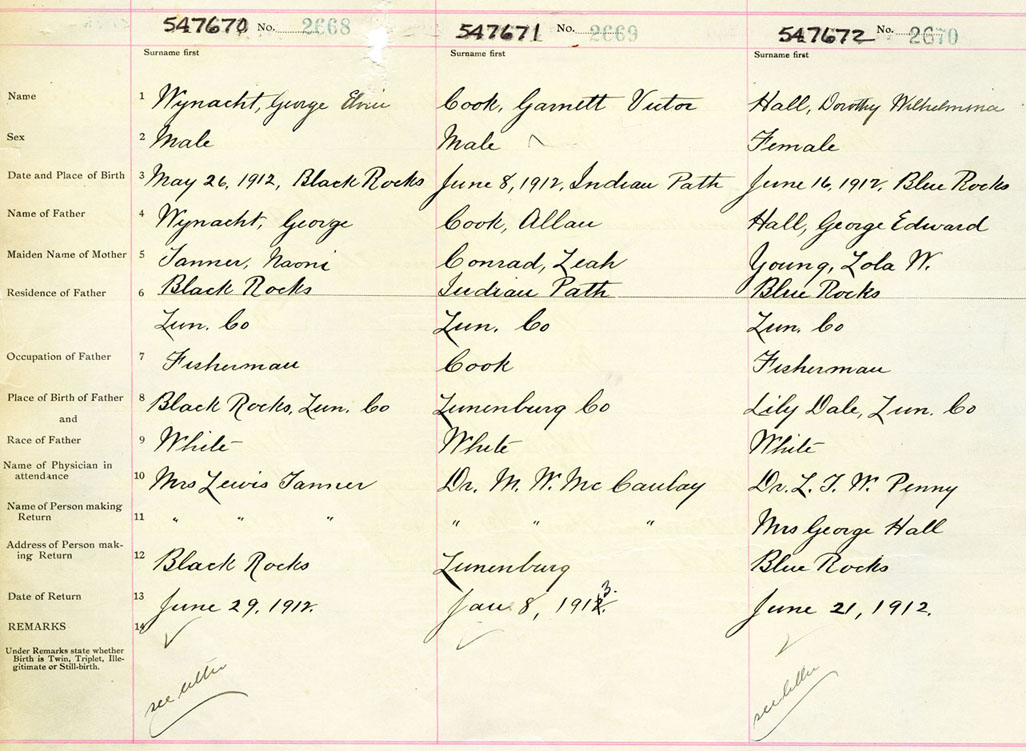 547670 No. 2668 547671 No. 2669 547672 No. 2670
Surname first Surname first Surname first
Name 1 Wynacht, George Elvin Cook, Garnett Victor Hall, Dorothy Wilhelmina
Sex 2 Male Male Female
Date and Place of Birth 3 May 26, 1912, Black Rocks June 8, 1912, Indian Path June 16, 1912, Blue Rocks
Name of Father 4 Wynacht, George Cook, Allan Hall, George Edward
Maiden Name of Mother 5 Tanner, Naomi Conrad, Leah Young, Lola W.
Residence of Father 6 Black Rocks Indian Path Blue Rocks
Lun. Co Lun. Co Lun. Co
Occupation of Father 7 Fisherman Cook Fisherman
Place of Birth of Father 8 Black Rocks, Lun. Co Lunenburg Co Lily Dale, Lun. Co
and
Race of Father 9 White White White
Name of Physician in
attendance 10 Mrs Lewis Tanner Dr. M. W. McCaulay Dr. L. T. W. Penny
Name of Person making
Return 11 " " " " " " Mrs George Hall
Address of Person mak-
ing Return 12 Black Rocks Lunenburg Blue Rocks
Date of Return 13 June 29, 1912. Jan. 8, 1913. June 21, 1912.
REMARKS 14
Under Remarks state whether
Birth is Twin, Triplet, Ille-
gitimate or Still-birth.
see letter see letter